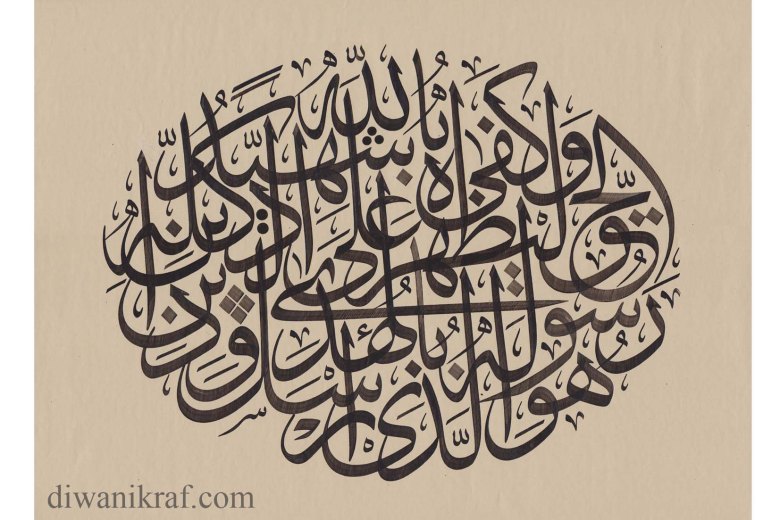 هو الذي أرسل رسوله بالهدى ودين الحق ليظهره على الدين كله وكفى بالله شهيدا
diwanikraf.com